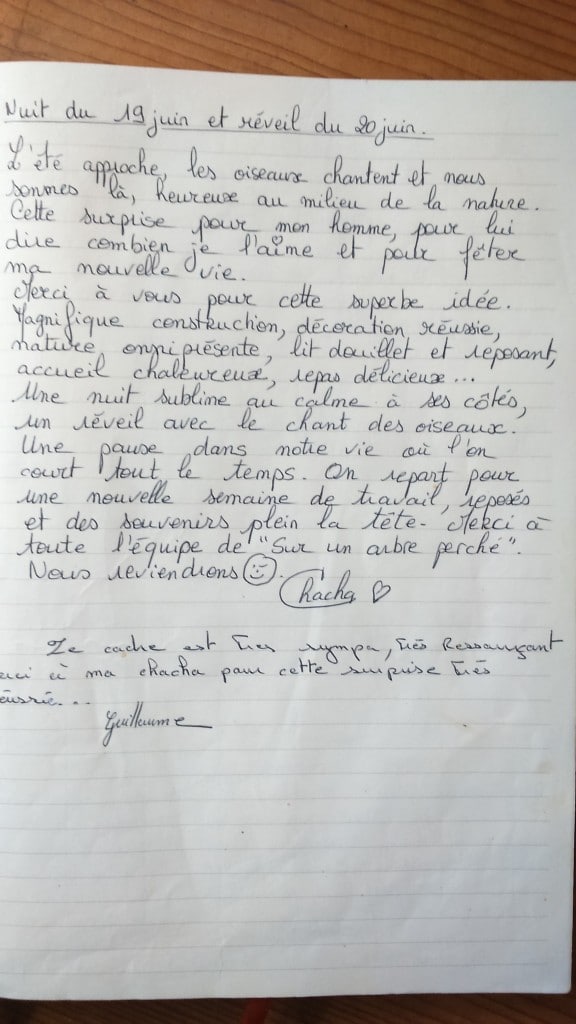 Nuit du 19 juin et réveil du 20 juin.
L'été approche, les oiseaux chantent et nous
sommes là, heureux au milieu de la nature.
Cette surprise pour mon homme, pour lui
dire combien je l'aime et pour fêter
ma nouvelle vie.
Merci à vous pour cette superbe idée.
Magnifique construction, décoration réussie,
nature omniprésente, lit douillet et reposant,
accueil chaleureux, repas délicieux...
Une nuit sublime au calme à ses côtés,
un réveil avec le chant des oiseaux.
Une pause dans notre vie où l'on
court tout le temps. On repart pour
une nouvelle semaine de travail, reposés
et des souvenirs plein la tête. Merci à
toute l'équipe de "Sur un arbre perché".
Nous reviendrons ☺.
Chacha ♡
Ze cache est très sympa, très Ressourçant
à ma chacha pour cette surprise très
Guillaume